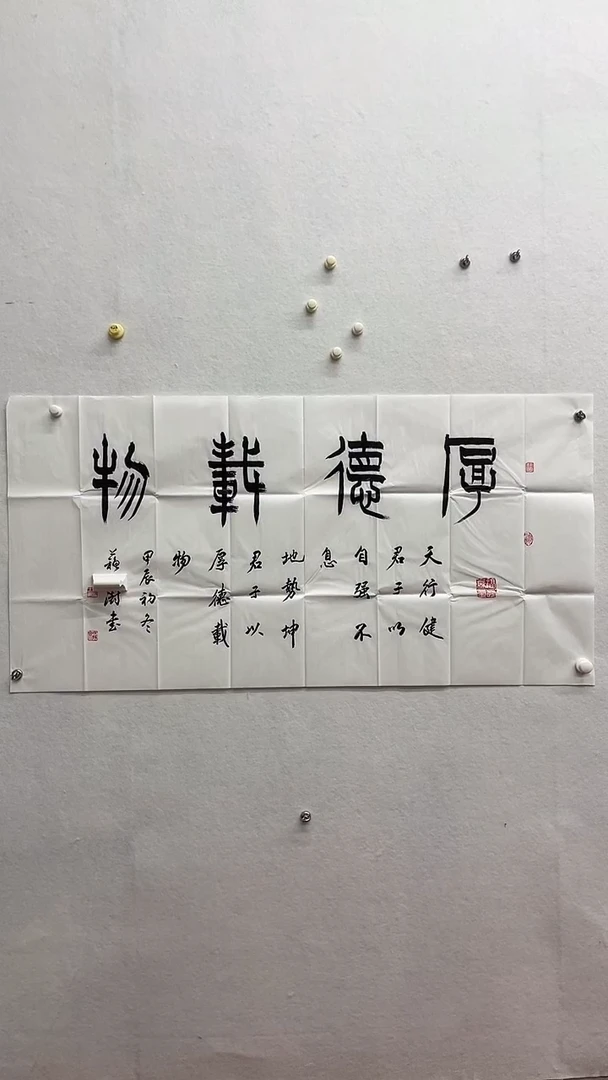 厚德載物
天行健
君子以
自强不
息
地勢坤
君子以
厚德載
物
甲辰初冬
蘇澍書